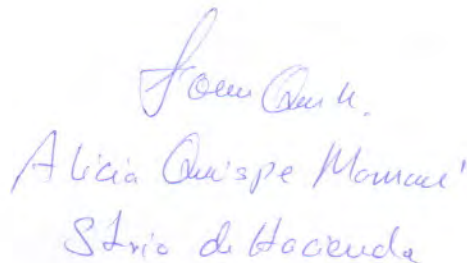 Alicia Quispe Mamani
Strio de Hacienda